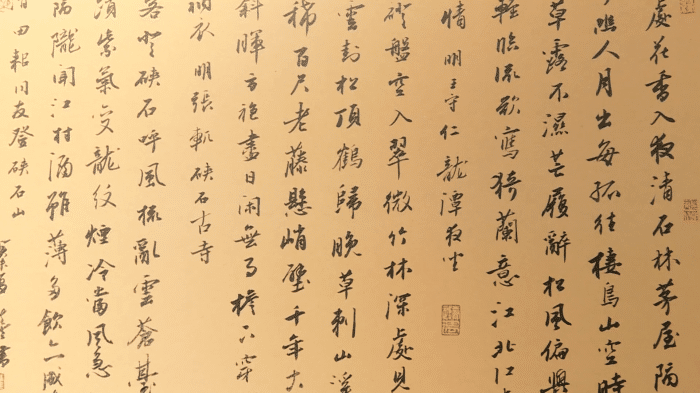 處花香入夜清石林茅屋隔
人月出每孤往棲鳥山空時
草露不濕芒屨辭松風偏與
輕臨流欲寫猗蘭意江北江
情 明王守仁龍潭夜坐
磴盤空入翠微竹林深處見
雲封松頂鶴歸晚草刺山溪
稀百尺老藤懸峭壁千年
斜暉方袍盡日閑無事
衲衣明張軏硤石古寺
登硤石呼風振亂雲蒼
紫氣交龍紋煙冷當風急
隔隴聞江村酒雖薄多飲亦
田耜同友登硤石山